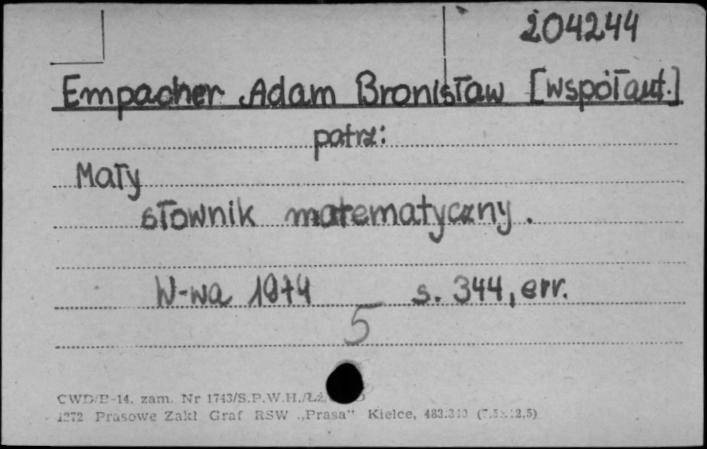 204244
Empacher Adam Bronisław [współaut.]
patrz:
Mały
słownik matematyczny.
W-wa 1974 s. 344, err.
5
CWD/P-14. zam. Nr 1743/S.P.W.H./ŁŻ
1272 Prasowe Zakł Graf RSW „Prasa" Kielce,